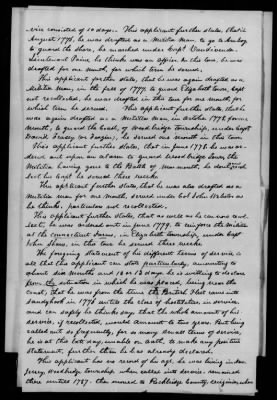 vice consisted of 10 days. This applicant further states, that in
August 1776, he was drafted as a Militia man to go to Amboy
to guard the shore, he marched under Capt
Lieutenant he thinks was an officer he this tour he was
drafted for one month, for which term he served.
This applicant further states, that he was again drafted as a
Militia man, in the fall of 1777, to guard Elizabeth town, Capt
not recollected, he was drafted in this tour for one month, for
which term he served. This applicant further states, that he
was again drafted as a Militia man, in October 1778, for one
month, to guard the coast, of Woodbridge township, under Capt
David he served one month in this tour.
This applicant further states, that in June 1778, he was or-
dered out upon an alarm to guard Woodbridge town, the
Militia having gone to the Battle of Monmouth, he
but his Capt he served three weeks.
This applicant further states, that he was also drafted as a
Militia man for one month served under Col John Webster as
he thinks. particulars not recollected.
This applicant further states, that as well as he can now recol-
lect, he was ordered out in June 1779, to reinforce the Militia
at the Connecticut Farms, in Elizabeth township, under Capt
John Shaw, in this tour he served three weeks.
The foregoing statement of his different terms of service is
all that this applicant can state particularly, amounting to
about six months and 12 or 13 days he is willing to declare
from the situation in which he was placed, living near the
coast, that he was from the time the British Fleet came into
Sandyhook in 1776 until the close of hostilities, in service
and can safely he thinks say, that the whole amount of his
service, if recollected, would amount to two years. But being
called out so frequently, for so many small terms of service,
he is at this late day, unable on oath, to make any positive
statement, further than he has already declared.
This applicant has no record of his age, he was living in New
Jersey, Woodbridge township when called into service. remained
there until 1787. then moved to Rockbridge County, Virginia, where